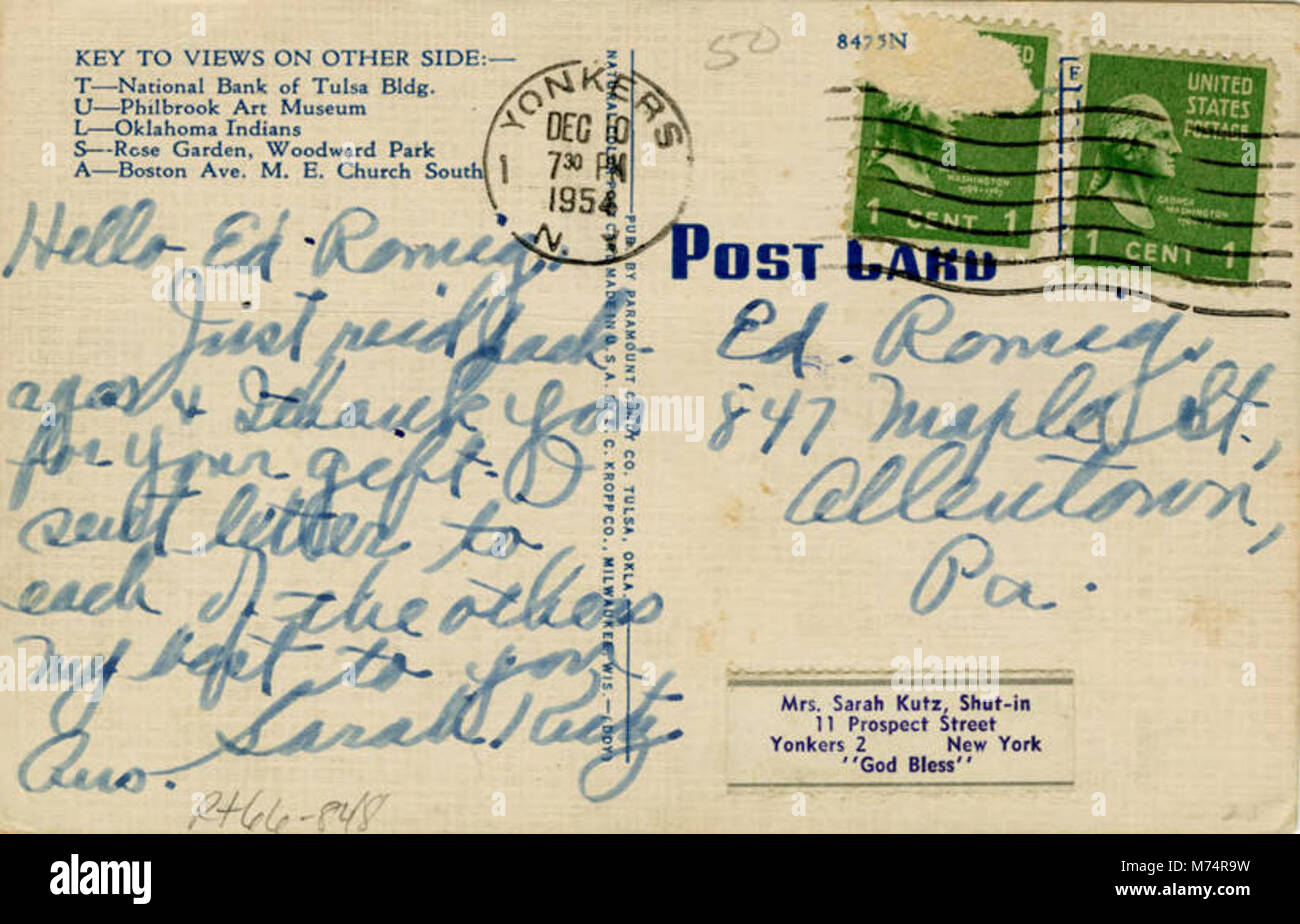 KEY TO VIEWS ON OTHER SIDE:—
T—National Bank of Tulsa Bldg.
U—Philbrook Art Museum
L—Oklahoma Indians
S--Rose Garden, Woodward Park
A—Boston Ave. M. E. Church South
Hello Ed Romig..
Just reid back
again & Thank you
for your gift. I
sent letter to
each of the others
My best to you
Sarah Kutz.
Ans.
Rt66-848
50
8475N
YONKERS
DEC 10
7 30 PM
1954
1
N.
UNITED
STATES
POSTAGE
GEORGE
WASHINGTON
1 CENT 1
WASHINGTON
1 CENT 1
POST CARD
PUB. BY PARAMOUNT CANDY CO. TULSA, OKLA.
C. KROPP CO., MILWAUKEE, WIS.
Ed. Romig,
847 Maple St.,
Allentown,
Pa.
Mrs. Sarah Kutz, Shut-in
11 Prospect Street
Yonkers 2 New York
"God Bless"
alamy
Image ID: M74R9W
www.alamy.com